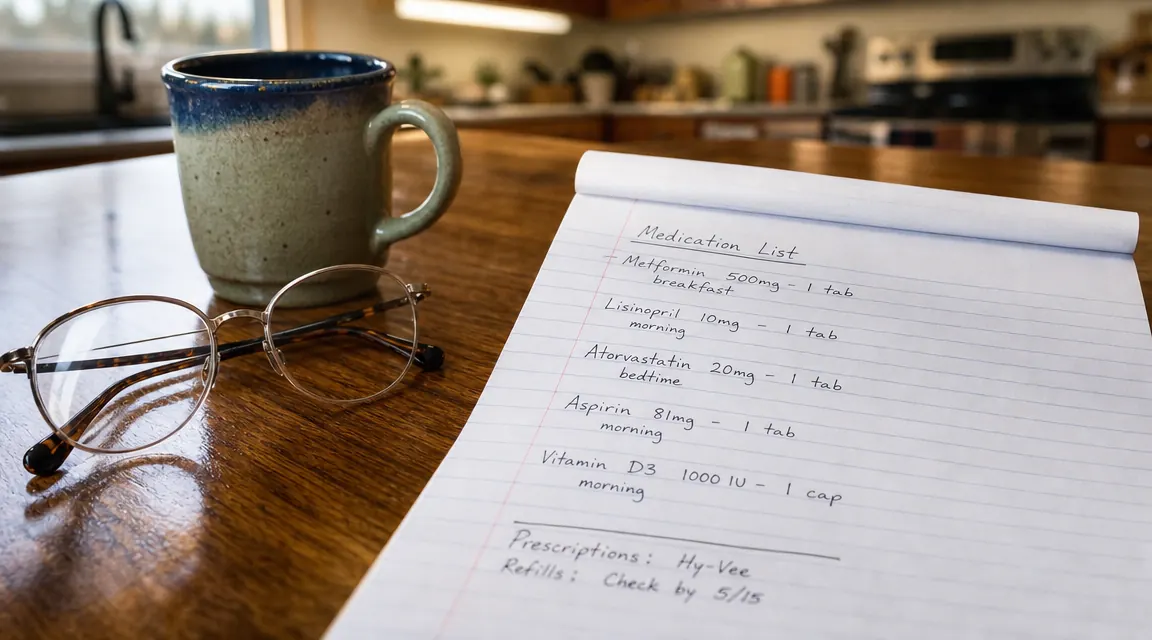 Medication List
Metformin 500mg - 1 tab
breakfast
Lisinopril 10mg - 1 tab
morning
Atorvastatin 20mg - 1 tab
bedtime
Aspirin 81mg - 1 tab
morning
Vitamin D3 1000 IU - 1 cap
morning
Prescriptions: Hy-Vee
Refills: Check by 5/15